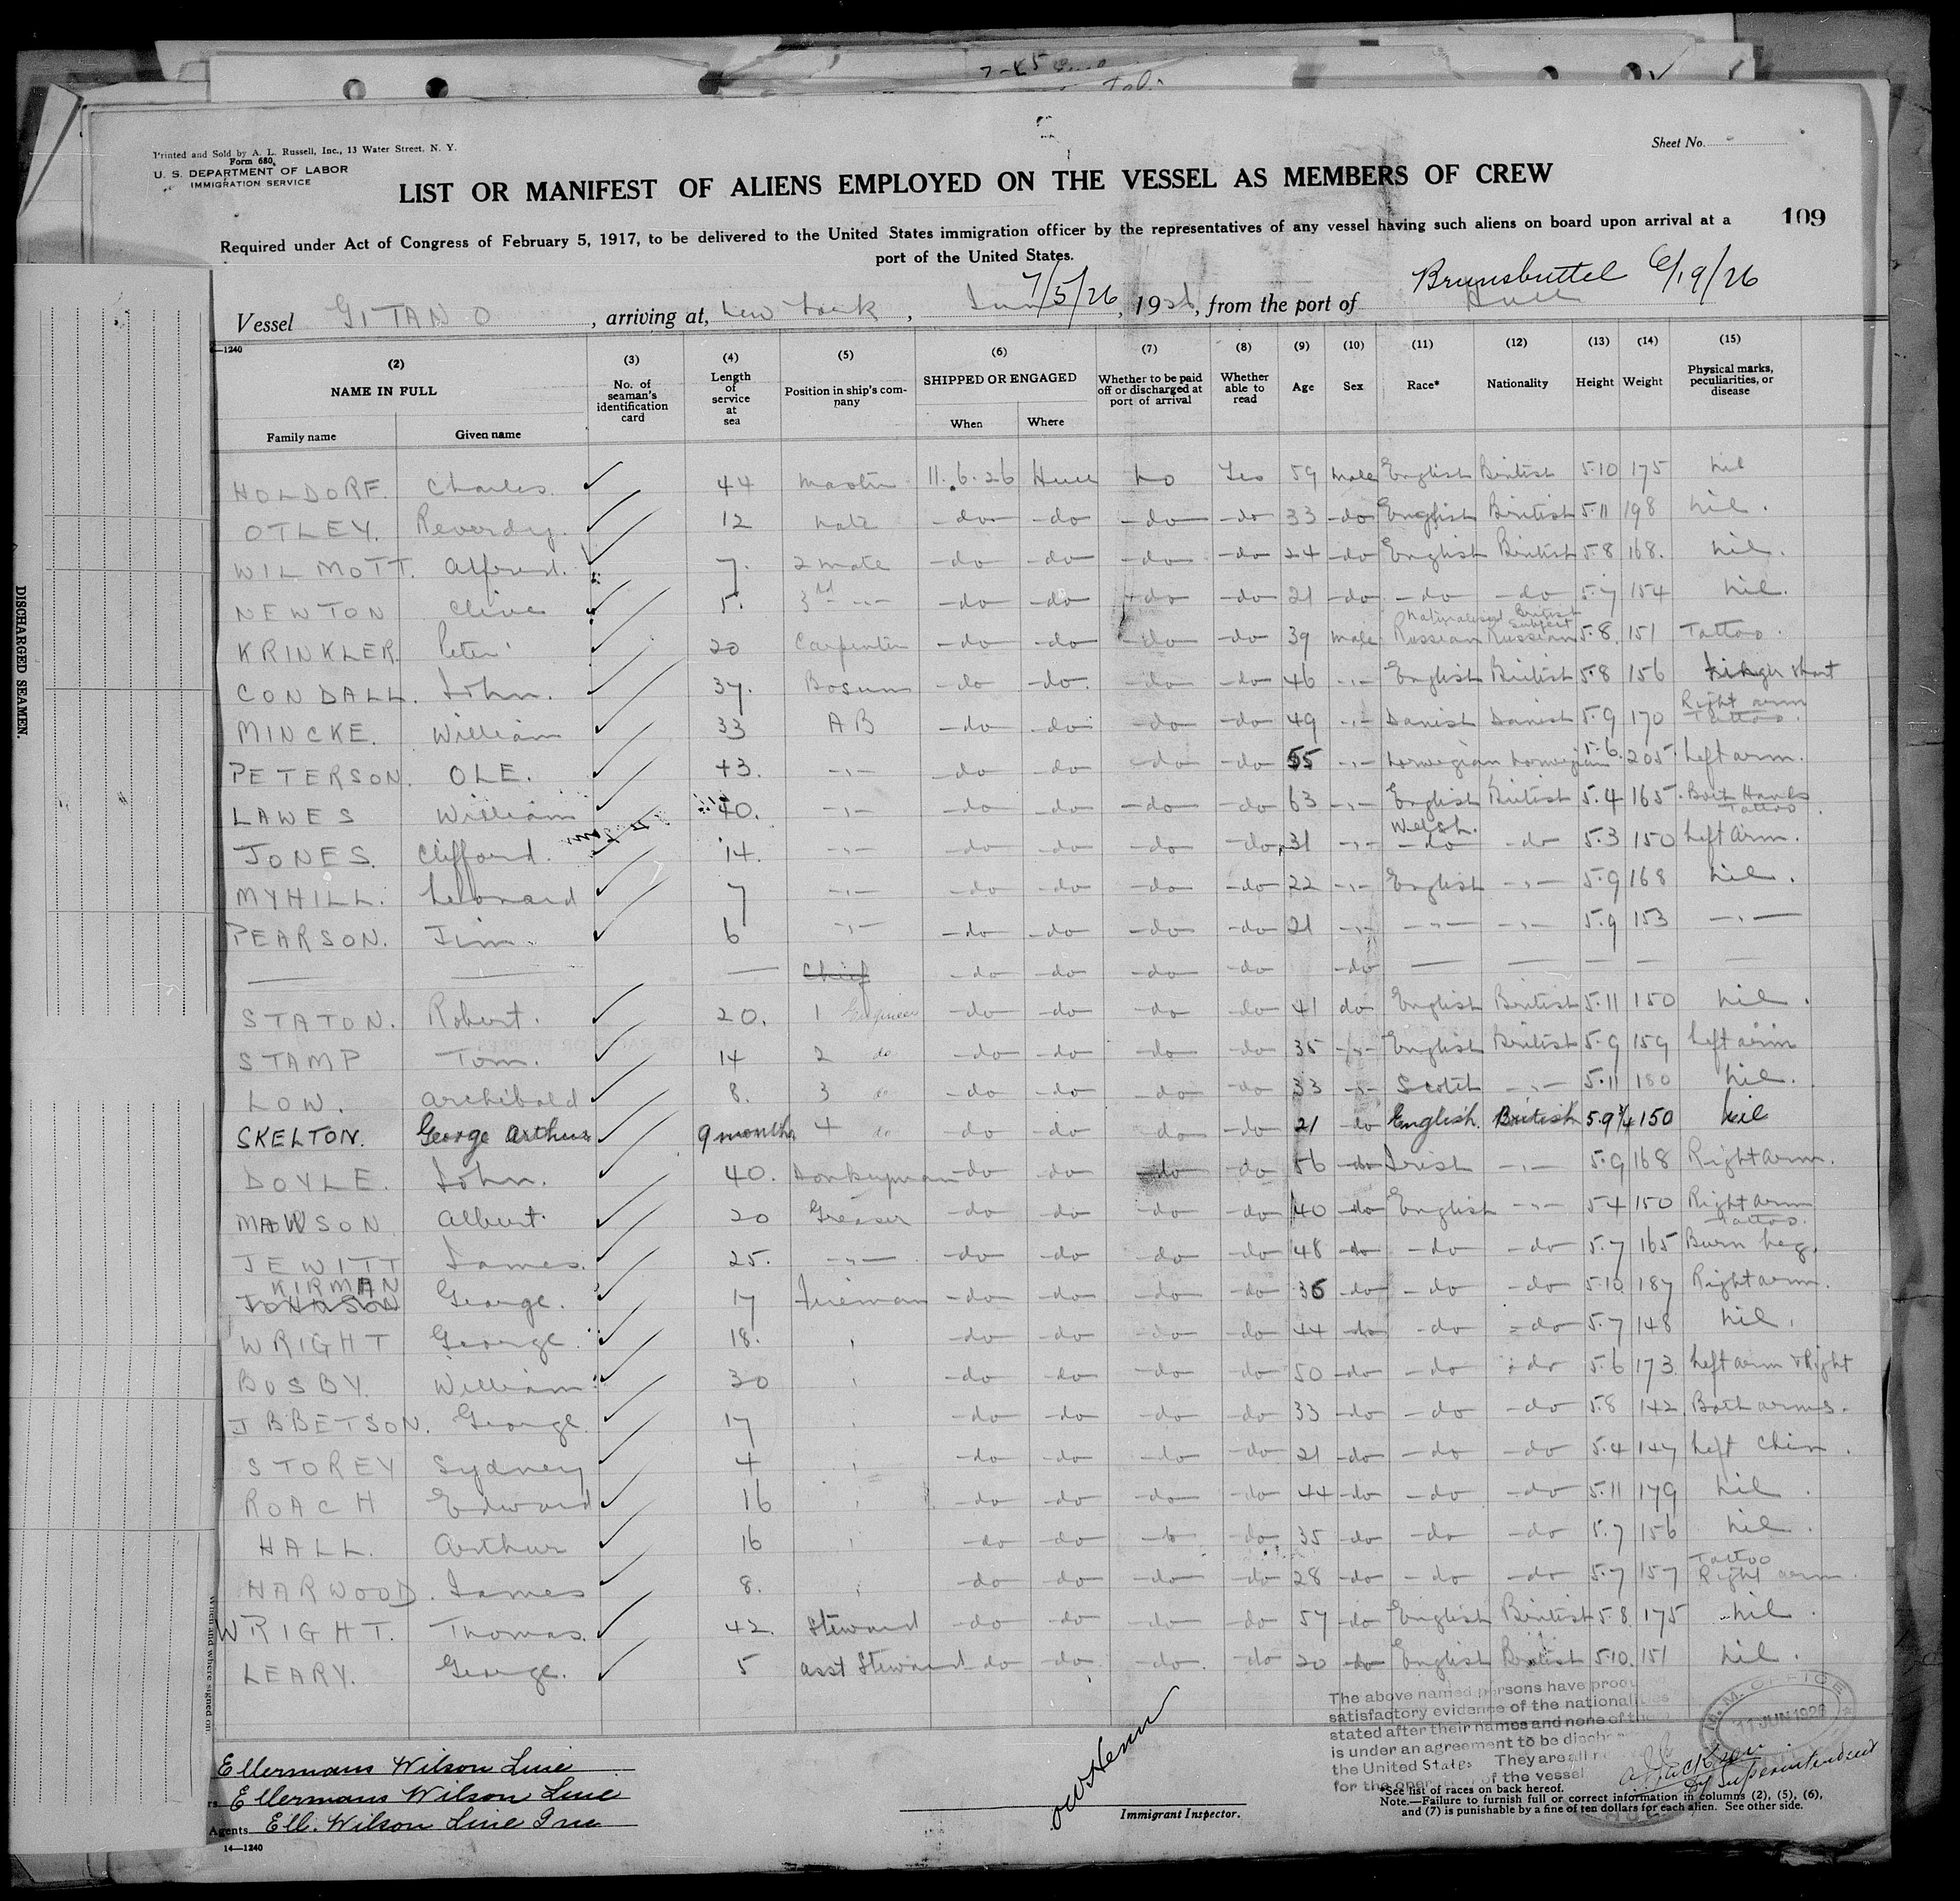 Printed and Sold by A. L. Russell, Inc., 13 Water Street, N. Y.
Form 680
U. S. DEPARTMENT OF LABOR
IMMIGRATION SERVICE
Sheet No.
LIST OR MANIFEST OF ALIENS EMPLOYED ON THE VESSEL AS MEMBERS OF CREW
109
Required under Act of Congress of February 5, 1917, to be delivered to the United States immigration officer by the representatives of any vessel having such aliens on board upon arrival at a
port of the United States.
7/5/26 Brunsbuttel 6/19/26
Vessel GITANO, arriving at, New York, 1926, from the port of Hull
14—1240
(2) (3) (4) (5) (6) (7) (8) (9) (10) (11) (12) (13) (14) (15)
NAME IN FULL No. of seaman's identification card Length of service at sea Position in ship's company SHIPPED OR ENGAGED Whether to be paid off or discharged at port of arrival Whether able to read Age Sex Race* Nationality Height Weight Physical marks, peculiarities, or disease
Family name Given name When Where
HOLDORF. Charles. 44 Master 11.6.26 Hull No Yes 59 Male English British 5.10 175 Nil
OTLEY. Reverdy. 12 Mate -do- -do -do- -do 33 -do English British 5.11 198 Nil.
WILMOTT. Alfred. 7. 2 Mate -do -do -do- -do 24 -do English British 5.8 168. Nil.
NEWTON Clive 5. 3rd -"- -do -do -do -do 21 -do -do -do 5.7 154 Nil.
Naturalised British Subject
KRINKLER. Peter 20 Carpenter -do -do -do -do 39 Male Russian Russian 5.8. 151 Tattoo.
CONDALL. John. 37. Bosun -do -do. -do -do 46 -"- English British 5.8 156 Finger short
MINCKE. William 33 AB -do -do -do -do 49 -"- Danish Danish 5.9 170 Right arm Tattoo.
PETERSON. OLE. 43. -"- -do -do -do -do 55 -"- Norwegian Norwegian 5.6. 205. Left arm.
LAWES William 40. -"- -do -do -do -do 63 -"- English British 5.4 165. Both Hands Tattoo.
JONES. Clifford. 14. -"- -do -do -do -do 31 -"- Welsh. -do -do 5.3 150 Left Arm.
MYHILL. Leonard 7 -"- -do -do -do -do 22 -"- English -"- 5.9 168 Nil.
PEARSON. Jim. 6 -"- -do -do -do -do 21 -"- -"- -"- 5.9 153 -"-
— — — Chief -do -do -do -do -do — — — — —
STATON. Robert. 20. 1 Engineer -do -do -do -do 41 do English British 5.11 150 Nil.
STAMP Tom. 14 2 do -do -do -do -do 35 -"- English British 5.9 159 Left arm
LOW. Archibald 8. 3 do -do -do -do -do 33 -"- Scotch -"- 5.11 180 Nil.
SKELTON. George Arthur 9 months 4 do -do -do -do -do 21 -do English. British 5.9¼ 150 Nil
DOYLE. John. 40. Donkeyman -do -do -do -do 56 -do Irish -"- 5.9 168 Right arm.
MAWSON Albert. 20 Greaser -do -do -do -do 40 -do English -"- 5.4 150 Right arm Tattoo.
JEWITT James. 25. -"- -do -do -do -do 48 -do -do -do 5.7 165 Burn Leg.
KIRMAN
JOHNSON George. 17 Fireman -do -do -do -do 36 -do -do -do 5.10 187 Right arm.
WRIGHT George. 18. " -do -do -do -do 44 -do -do -do 5.7 148 Nil.
BUSBY. William. 30 " -do -do -do -do 50 -do -do -do 5.6 173. Left arm & Right
IBBETSON. George 17 " -do -do -do -do 33 -do -do -do 5.8 142 Both arms.
STOREY Sydney 4 " -do -do -do -do 21 -do -do -do 5.4 147 Left Chin.
ROACH Edward 16 " -do -do -do -do 44 -do -do -do 5.11 179 Nil.
HALL. Arthur 16 " -do -do -do -do 35 -do -do -do 5.7 156 Nil.
HARWOOD. James 8. " -do -do -do -do 28 -do -do -do 5.7 157 Tattoo Right arm.
WRIGHT. Thomas. 42. Steward -do -do -do -do 57 -do English British 5.8 175 Nil.
LEARY. George. 5 Asst Steward -do -do -do -do 20 -do English British 5.10. 151 Nil.
DISCHARGED SEAMEN.
When and where signed on
The above named persons have
satisfactory evidence of the
stated after their names and none of
is under an agreement to be
the United States They are all
for the of the vessel
17 JUN 1926
Jackson
Dy Superintendent
Ellermans Wilson Line
Ellermans Wilson Line
Agents Ell. Wilson Line Inc
Immigrant Inspector.
*See list of races on back hereof.
Note.—Failure to furnish full or correct information in columns (2), (5), (6),
and (7) is punishable by a fine of ten dollars for each alien. See other side.
14—1240